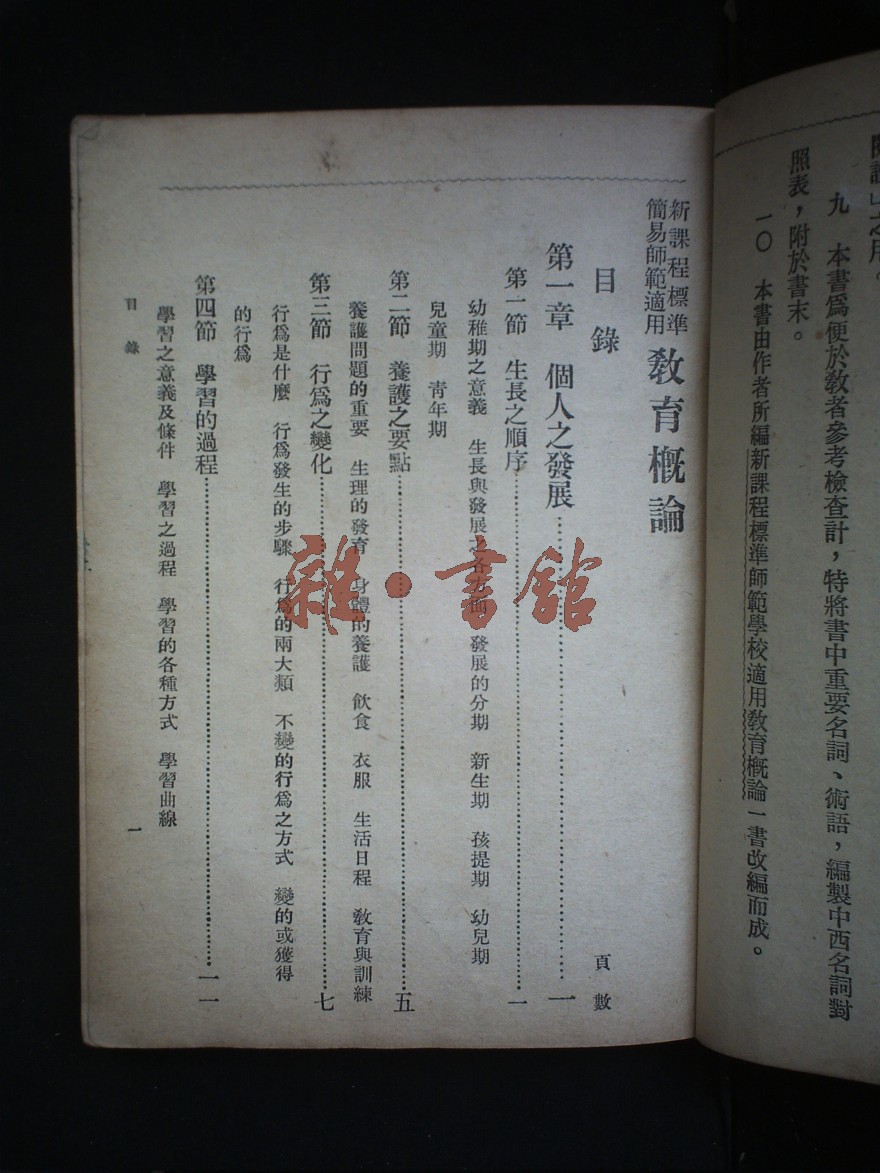 附說」之用。
九　本書爲便於敎者參考檢查計，特將書中重要名詞、術語，編製中西名詞對
照表，附於書末。
一〇　本書由作者所編新課程標準師範學校適用敎育槪論一書改編而成。
新課程標準
簡易師範適用
敎育槪論
目錄
頁數
第一章　個人之發展…………一
第一節　生長之順序…………一
幼稚期之意義　生長與發展之各方面　發展的分期　新生期　孩提期　幼兒期
兒童期　靑年期
第二節　養護之要點…………五
養護問題的重要　生理的發育　身體的養護　飮食　衣服　生活日程　敎育與訓練
第三節　行爲之變化…………七
行爲是什麼　行爲發生的步驟　行爲的兩大類　不變的行爲之方式　變的或獲得
的行爲
第四節　學習的過程…………一一
學習之意義及條件　學習之過程　學習的各種方式　學習曲線
目錄
一
雜·書館